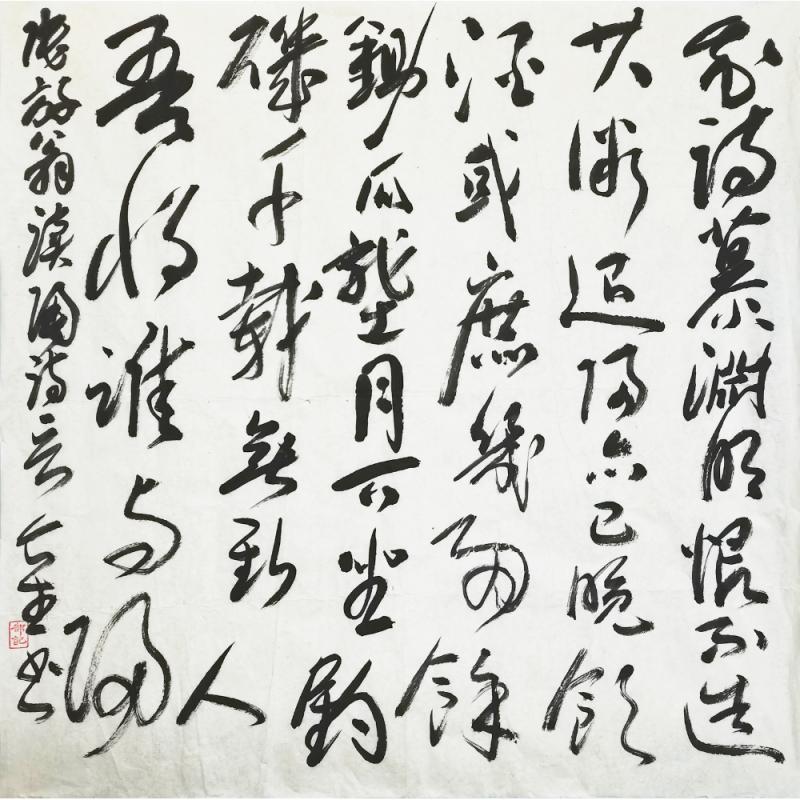 我詩慕淵明恨不造
其微退歸亦已晚飲
酒或庶幾雨餘
鋤瓜壟月下坐釣
磯千載無斯人
吾將誰與歸
放翁讀陶詩 書